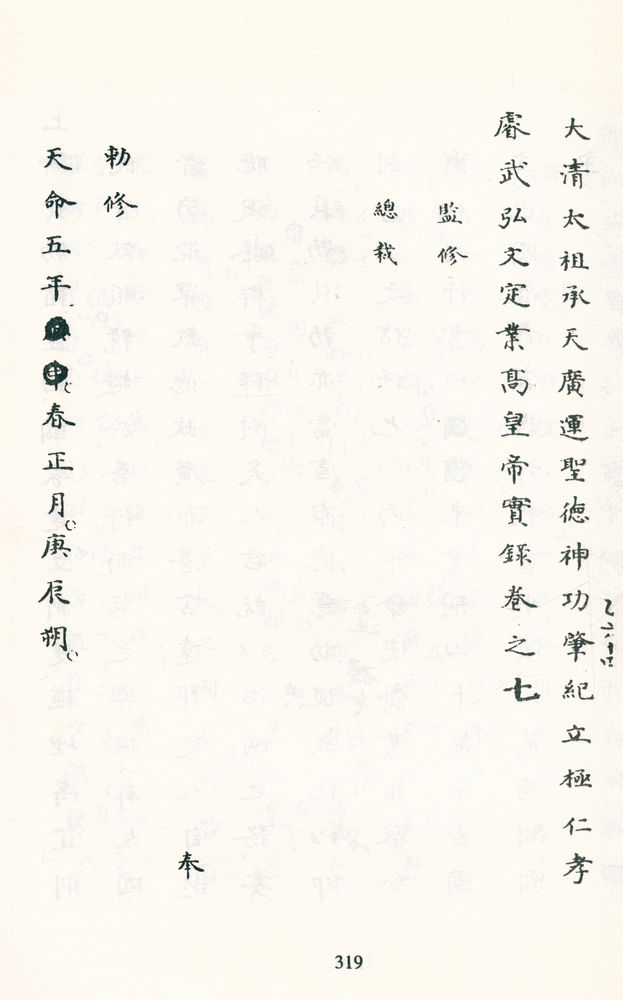 大清太祖承天廣運聖德神功肇紀立極仁孝
睿武弘文定業高皇帝實錄卷之七
監修
總裁
奉
勅修
天命五年申春正月庚辰朔
319